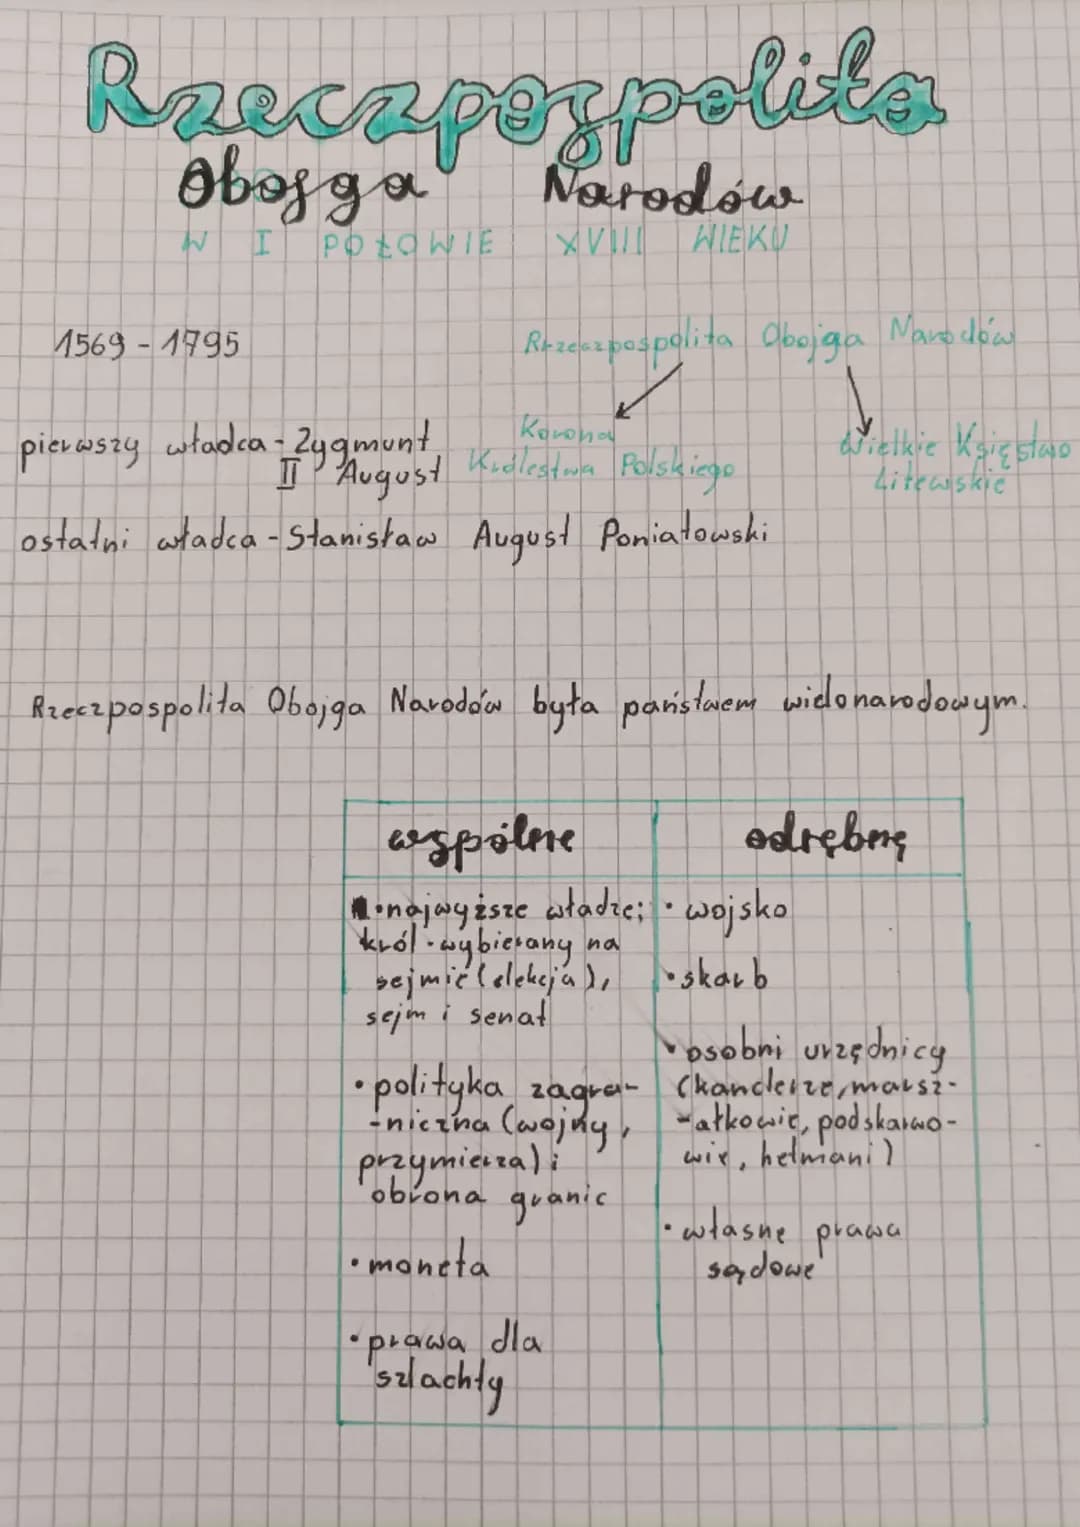 Rzeczpospolita
Obojga Narodów
W I POŁOWIE XVIII WIEKU
1569 - 1795
Rzeczpospolita Obojga Narodów
pierwszy władca - Zygmunt
II August
Korona
Królestwa Polskiego
Wielkie Księstwo
Litewskie
ostatni władca - Stanisław August Poniatowski
Rzeczpospolita Obojga Narodów była państwem wielonarodowym.
wspólne
• najwyższe władze;
król - wybierany na
sejmie (elekcja),
sejm i senat
• polityka zagra-
-niczna (wojny,
przymierza) i
obrona granic
• moneta
• prawa dla
szlachty
odrębne
• wojsko
• skarb
• osobni urzędnicy
(kanclerze, marsz-
-ałkowie, podskarwo-
wie, hetmani)
• własne prawa
sądowe